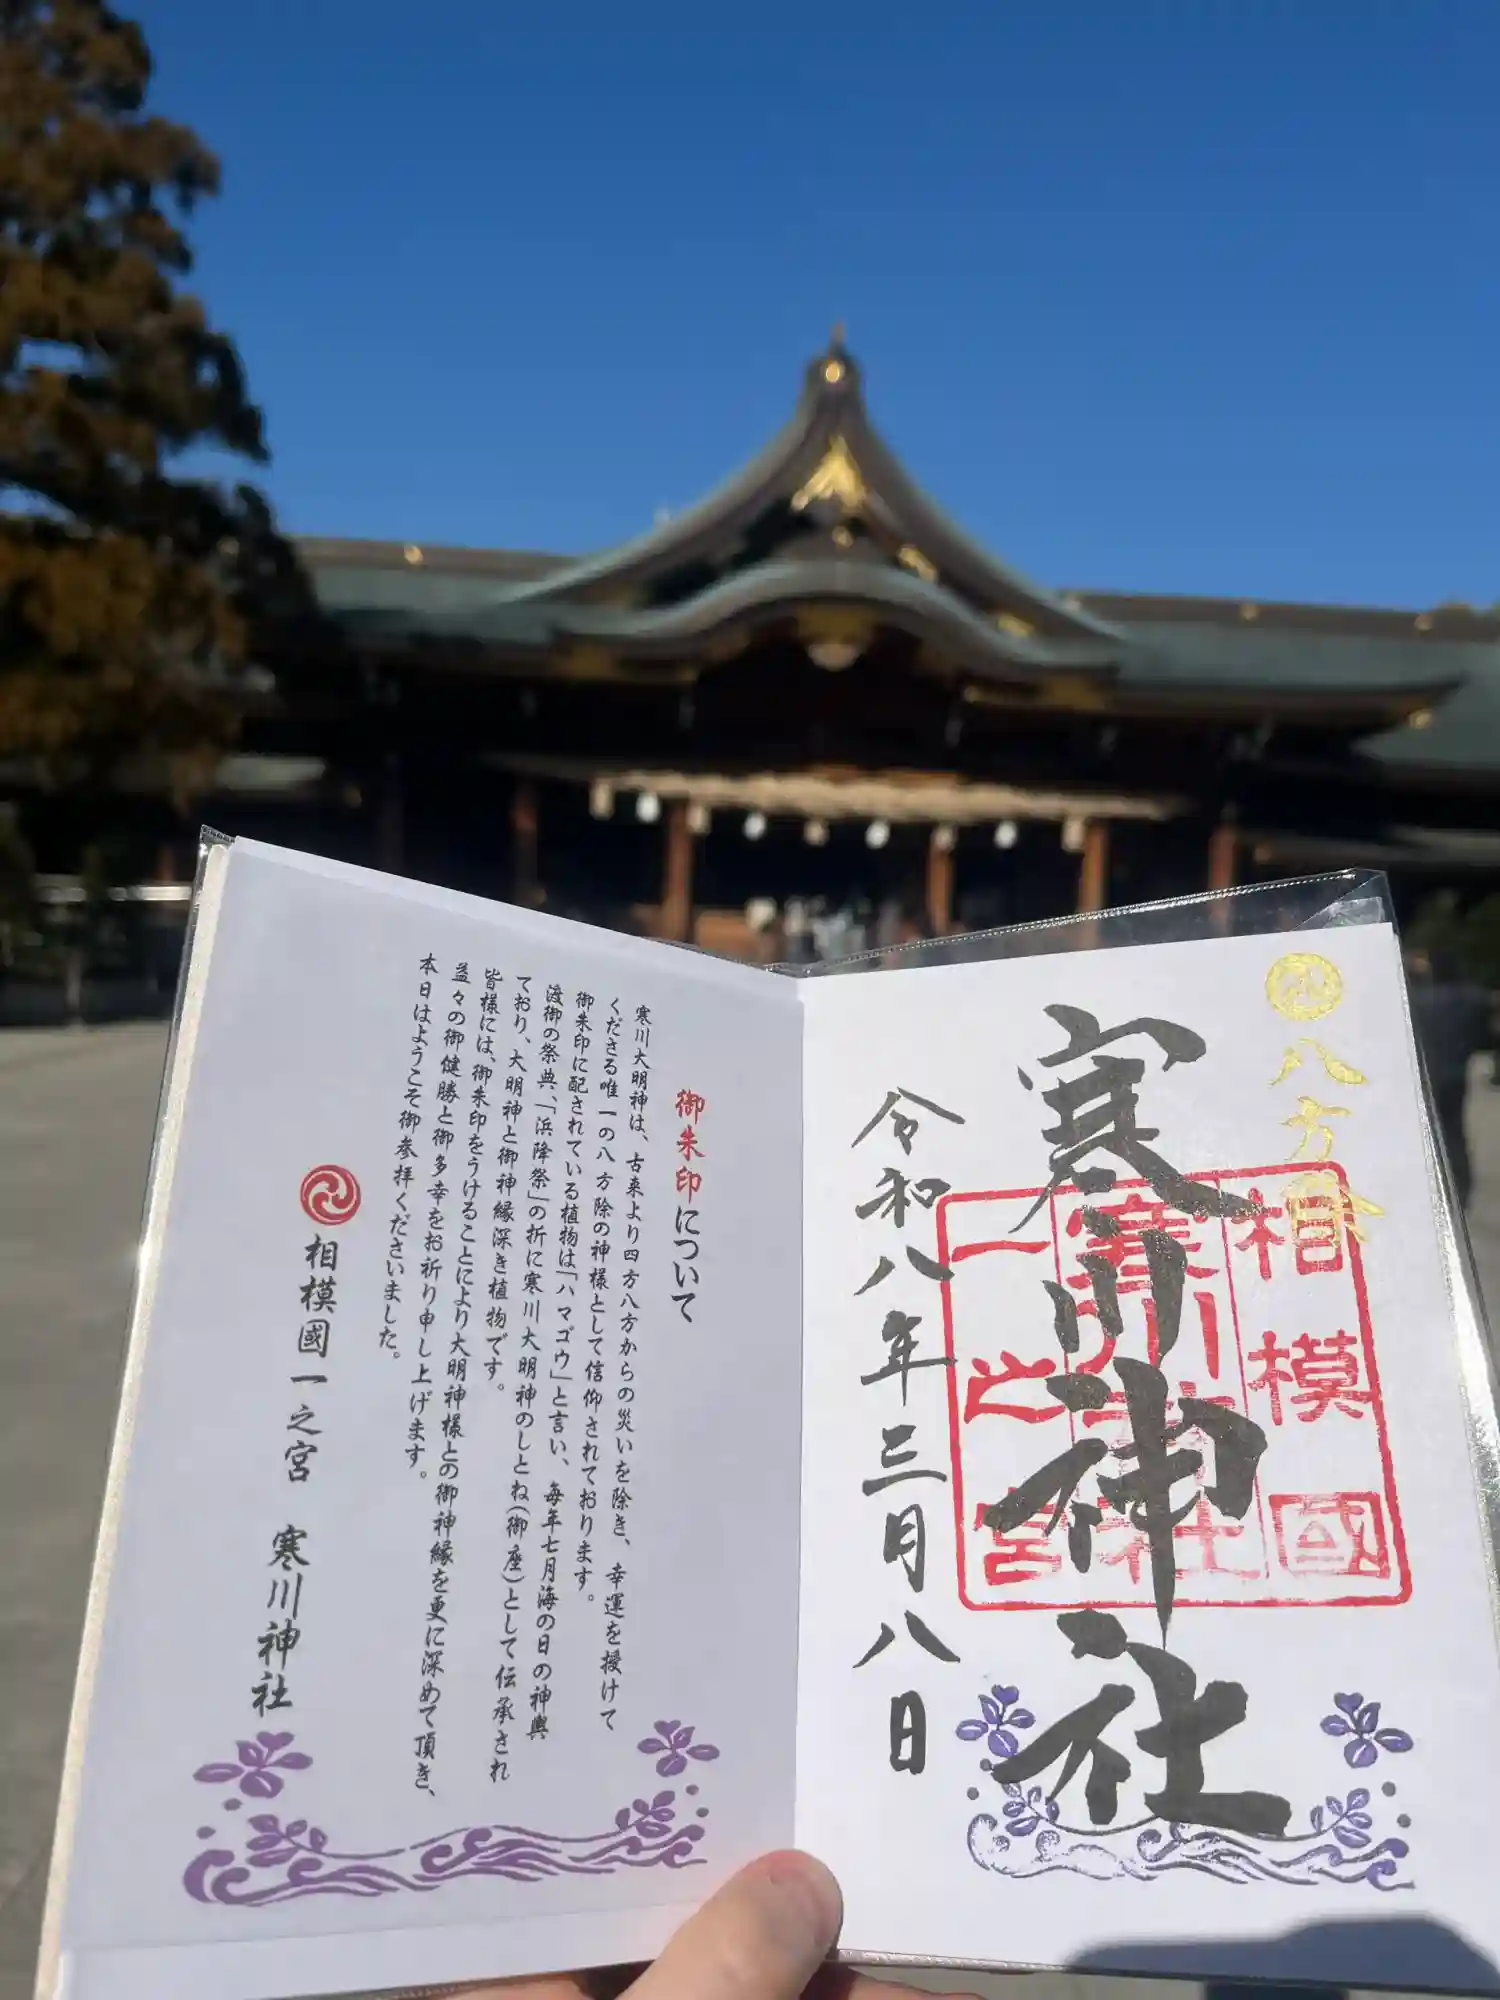 八方除
相模國
寒川神社
一之宮
寒川神社
令和八年三月八日
御朱印について
寒川大明神は、古来より四方八方からの災いを除き、幸運を授けて
くださる唯一の八方除の神様として信仰されております。
御朱印に配されている植物は「ハマゴウ」と言い、毎年七月海の日の神輿
渡御の祭典、「浜降祭」の折に寒川大明神のしとね(御座)として伝承され
ており、大明神と御神縁深き植物です。
皆様には、御朱印をうけることにより大明神様との御神縁を更に深めて頂き、
益々の御健勝と御多幸をお祈り申し上げます。
本日はようこそ御参拝くださいました。
相模國一之宮 寒川神社